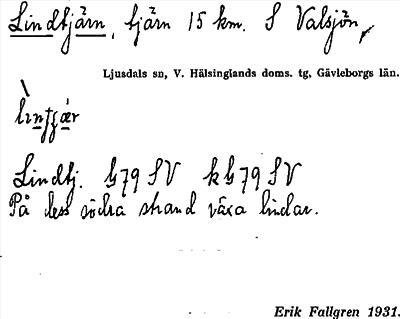 Lindtjärn, tjärn 15 km. S Valsjön
Ljusdals sn, V. Hälsinglands doms. tg, Gävleborgs län.
Lindtj. G 79 SV k G 79 SV
På dess södra strand växa lindar.
Erik Fallgren 1931.